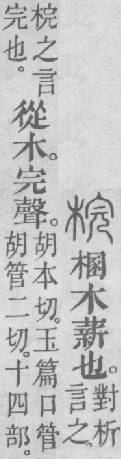 梡 㮯木薪也。對析
言之。
梡之言
完也。
從木。完聲。
胡本切。玉篇口管
胡管二切。十四部。